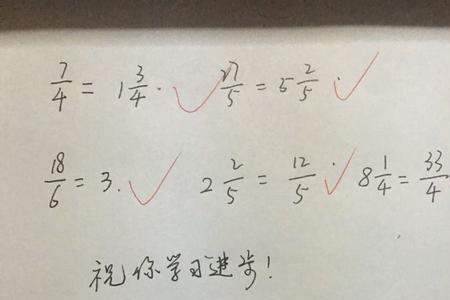 7/4 = 1 3/4. 27/5 = 5 2/5.
18/6 = 3. 2 2/5 = 12/5. 8 1/4 = 33/4
祝你学习进步!